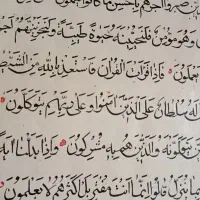 صبروا أجرهم بأحسن ما كانوا يعملون
وَهُوَ مُؤْمِنٌ فَلَنُحْيِيَنَّهُ حَيٰوةً طَيِّبَةً وَلَنَجْزِيَنَّهُمْ
يَعْمَلُونَ فَإِذَا قَرَأْتَ الْقُرْآنَ فَاسْتَعِذْ بِاللَّهِ مِنَ
لَهُ سُلْطَانٌ عَلَى الَّذِينَ آمَنُوا وَعَلَى رَبِّهِمْ يَتَوَكَّلُونَ
يَتَوَلَّوْنَهُ وَالَّذِينَ هُمْ بِهِ مُشْرِكُونَ وَإِذَا بَدَّلْنَا آيَةً
بِمَا يُنَزِّلُ قَالُوا إِنَّمَا أَنْتَ مُفْتَرٍ بَلْ أَكْثَرُهُمْ لَا يَعْلَمُونَ